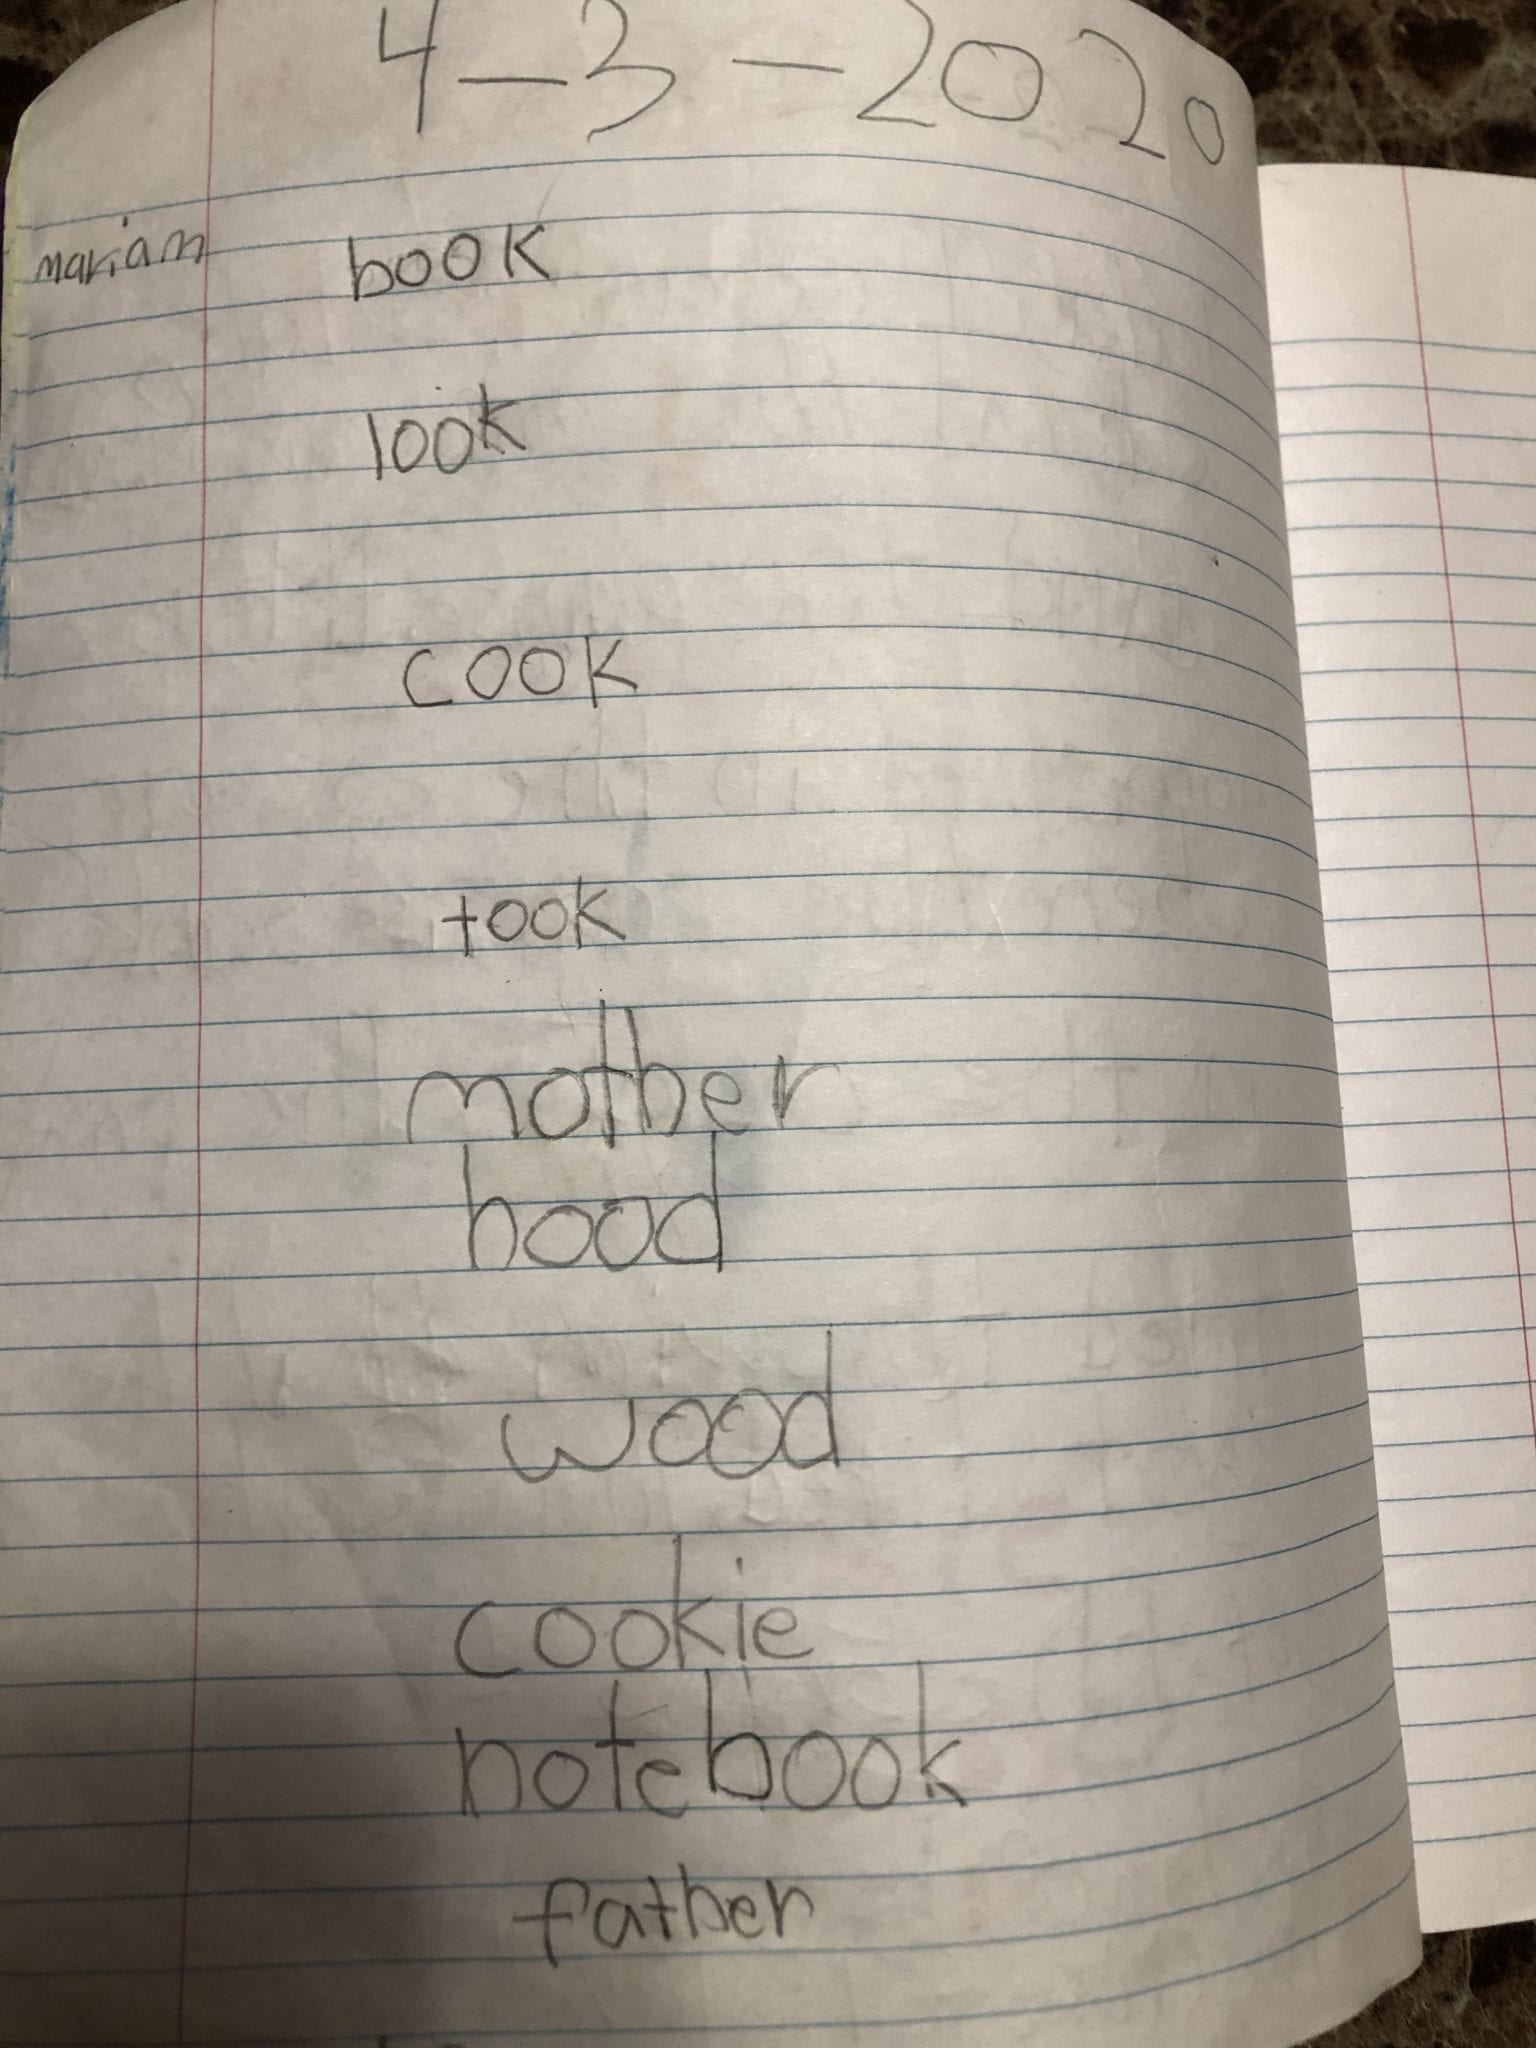 4-3-2020
mariam book
look
cook
took
mother
hood
wood
cookie
notebook
father